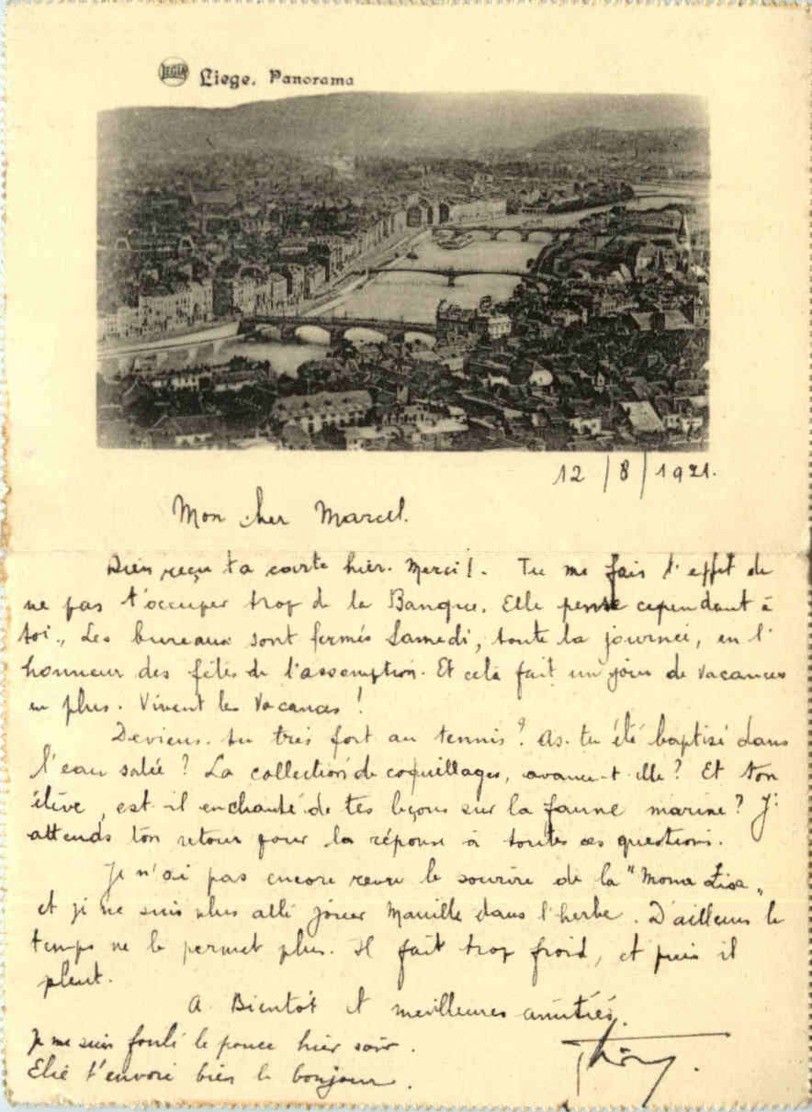 LEGIA Liege. Panorama
12/8/1921.
Mon cher Marcel.
Bien reçu ta carte hier. Merci!. Tu me fais l'effet de
ne pas t'occuper trop de la Banque. Elle pense cependant à
toi., Les bureaux sont fermés Samedi, toute la journée, en l'
honneur des fêtes de l'assomption. Et celà fait un jour de vacances
en plus. Vivent les Vacances!
Deviens-tu très fort au tennis? As-tu été baptisé dans
l'eau salée? La collection de coquillages, avance-t-elle? Et ton
élève, est-il enchanté de tes leçons sur la faune marine? J'
attends ton retour pour la réponse à toutes ces questions.
Je n'ai pas encore revu le sourire de la "Mona Lisa„
et je ne suis plus allé jouer Manille dans l'herbe. D'ailleurs le
temps ne le permet plus. Il fait trop froid, et puis il
pleut.
A Bientôt et meilleures amitiés.
Je me suis foulé le pouce hier soir.
Elie t'envoie bien le bonjour.